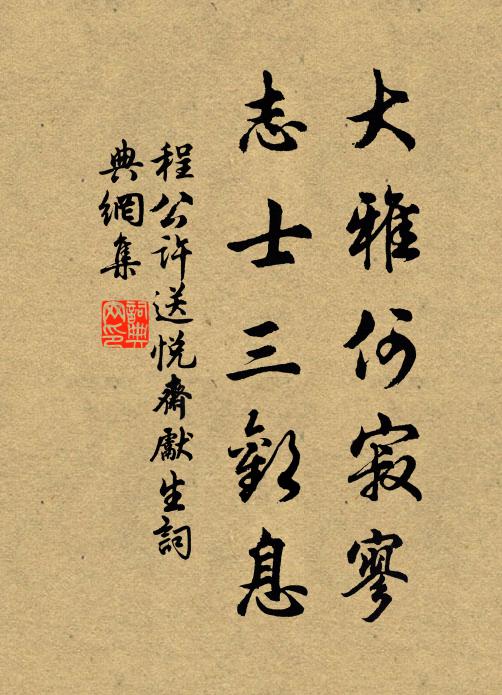 大雅何寂寥
志士三歎息
程公許送悅齋獻生詞
典網集
詞典網印